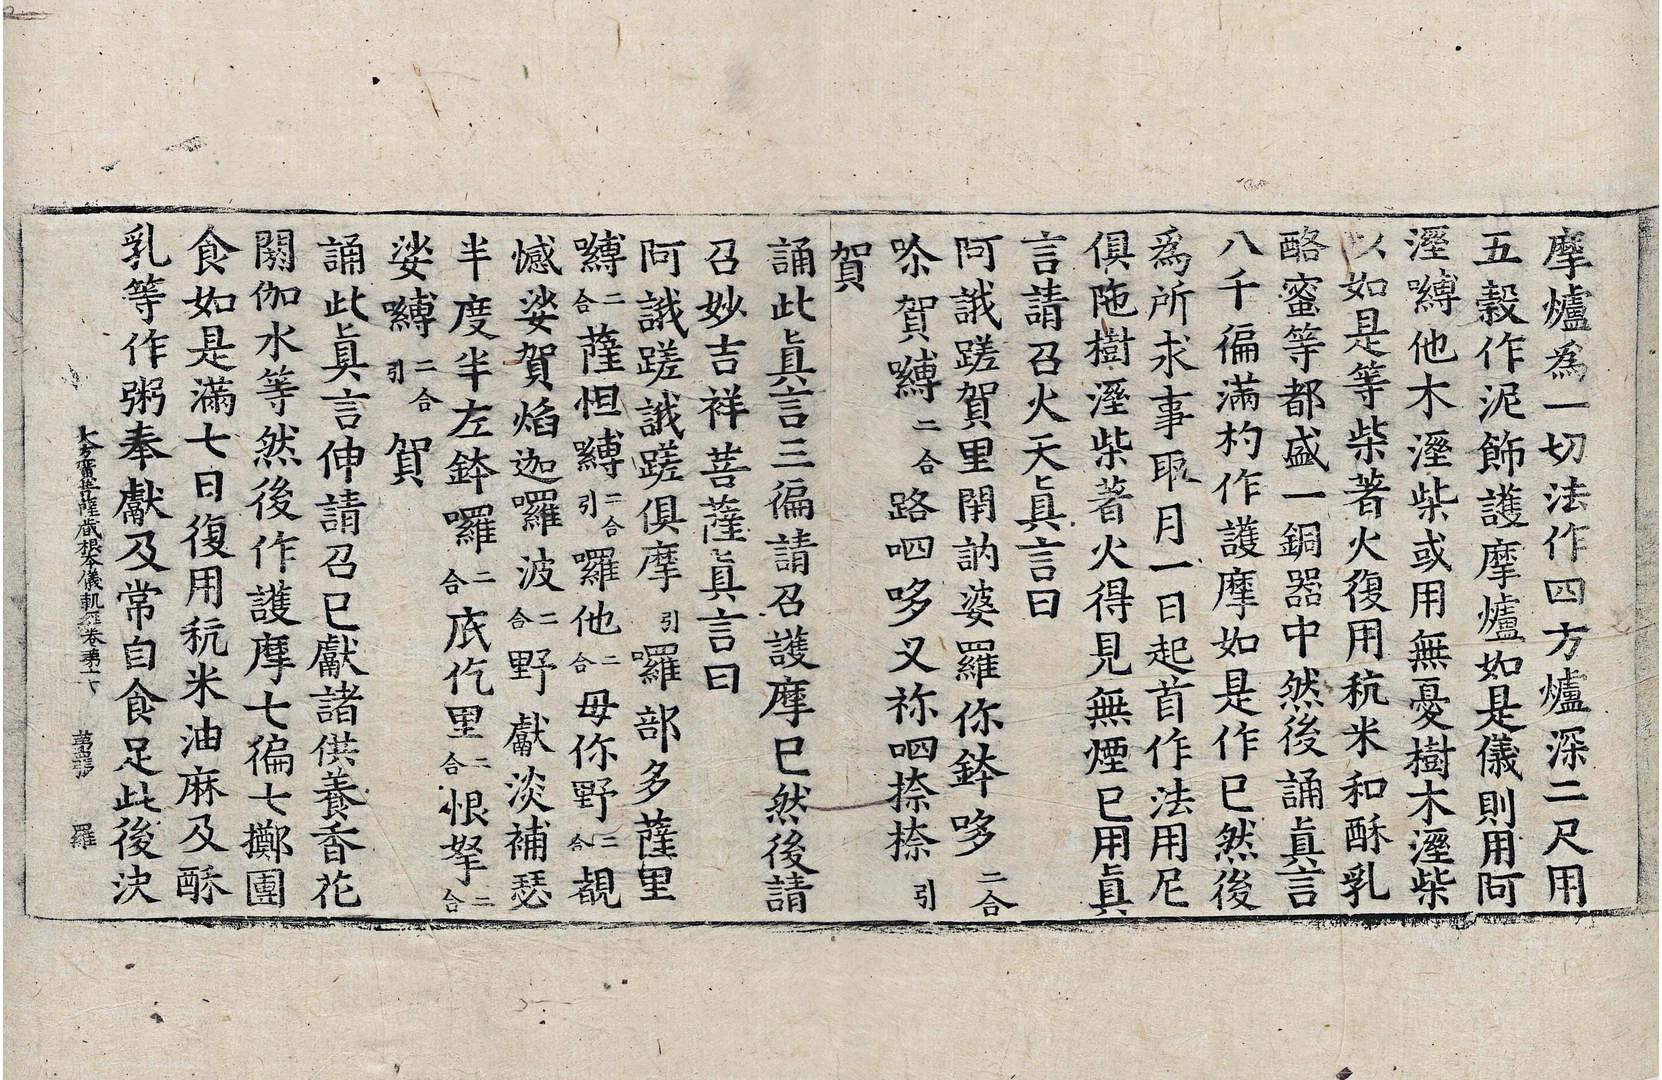 摩爐爲一切法作四方爐深二尺用
五穀作泥飾護摩爐如是儀則用阿
溼嚩他木溼柴或用無憂樹木溼柴
以如是等柴著火復用秔米和酥乳
酪蜜等都盛一銅器中然後誦眞言
八千徧滿杓作護摩如是作已然後
爲所求事取月一日起首作法用尼
俱陁樹溼柴著火得見無煙已用眞
言請召火天眞言曰
阿誐蹉賀里閉訥婆羅你鉢哆二合
尒賀嚩二合路呬哆叉祢呬捺捺引
賀
誦此眞言三徧請召護摩已然後請
召妙吉祥菩薩眞言曰
阿誐蹉誐蹉俱摩引囉部多薩里
嚩二合薩怛嚩二合引囉他二合毋你野二合覩
憾娑賀焰迦囉波二合野獻淡補瑟
半度半左鉢囉二合底仡里二合恨拏二合
娑嚩二合引賀
誦此眞言伸請召已獻諸供養香花
閼伽水等然後作護摩七徧七擲團
食如是滿七日復用秔米油麻及酥
乳等作粥奉獻及常自食足此後決
大方廣菩薩藏根本儀軌經卷第十六 羅